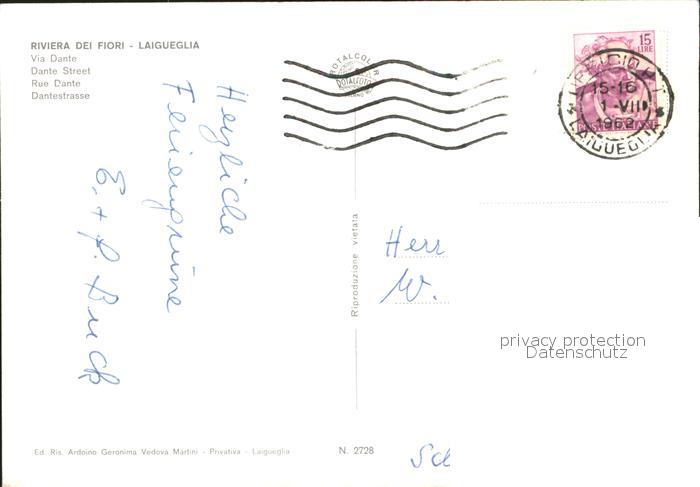 RIVIERA DEI FIORI - LAIGUEGLIA
Via Dante
Dante Street
Rue Dante
Dantestrasse
Herzliche
Feriengrüsse
E. + P.
ROTALCOLOR
ROTALFOTO
15
LIRE
15-16
1-VIII
1962
LAIGUEGLIA
Riproduzione vietata
Herr
W.
privacy protection
Datenschutz
Ed. Ris. Ardoino Geronima Vedova Martini - Privativa - Laigueglia
N. 2728